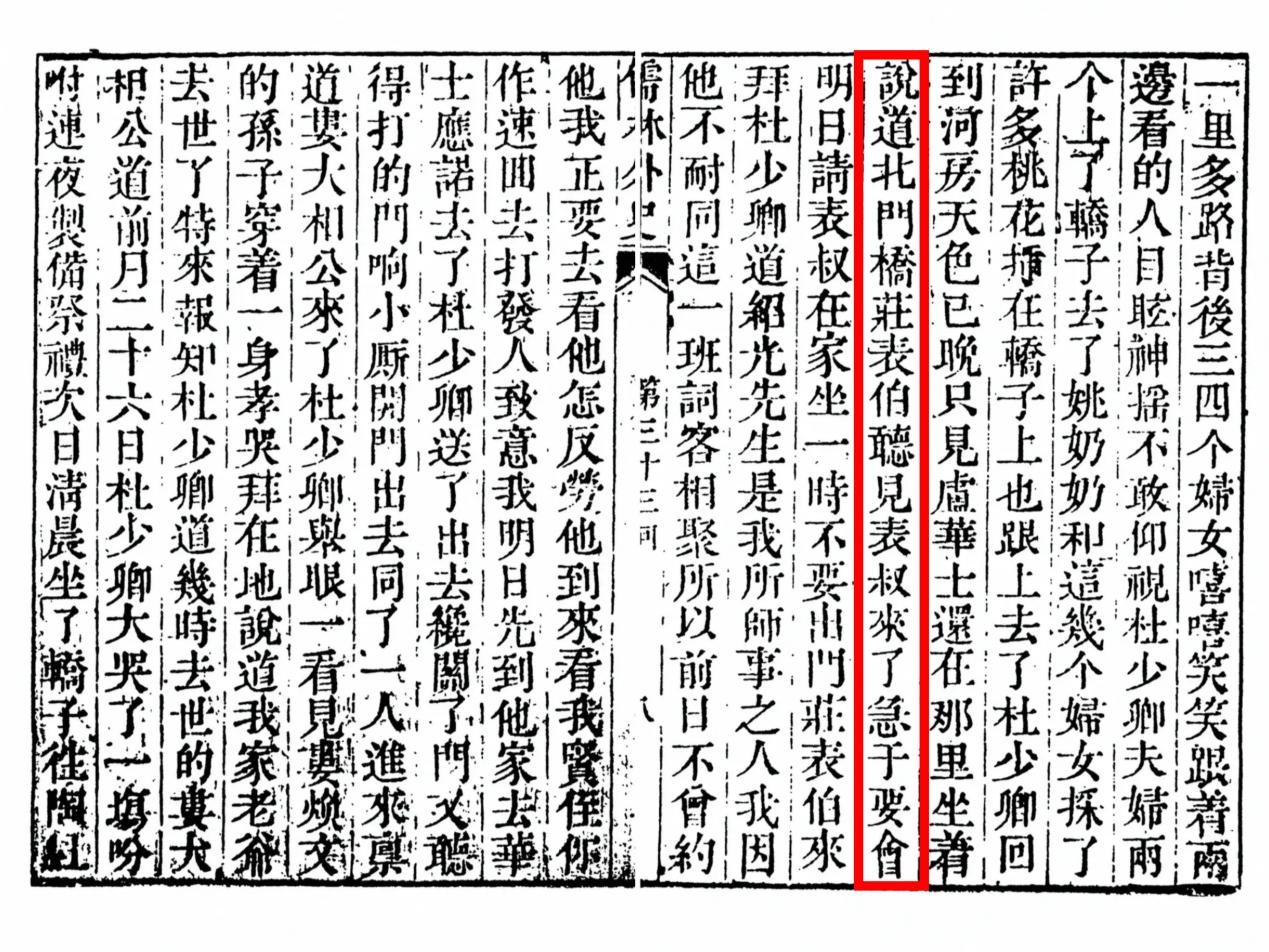 一里多路背後三四个婦女嘻嘻笑笑跟着兩
邊看的人目眩神搖不敢仰視杜少卿夫婦兩
个上了轎子去了姚奶奶和這幾个婦女採了
許多桃花揷在轎子上也跟上去了杜少卿回
到河房天色已晚只見盧華士還在那里坐着
說道北門橋莊表伯聽見表叔來了急于要會
明日請表叔在家坐一時不要出門莊表伯來
拜杜少卿道紹光先生是我所師事之人我因
他不耐同這一班詞客相聚所以前日不曾約
儒林外史 第三十三回 八
他我正要去看他怎反勞他到來看我賢侄你
作速囬去打發人致意我明日先到他家去華
士應諾去了杜少卿送了出去纔關了門又聽
得打的門响小厮開門出去同了一人進來禀
道婁大相公來了杜少卿舉眼一看見婁煥文
的孫子穿着一身孝哭拜在地說道我家老爺
去世了特來報知杜少卿道幾時去世的婁大
相公道前月二十六日杜少卿大哭了一塲吩
咐連夜製備祭禮次日淸晨坐了轎子往陶紅